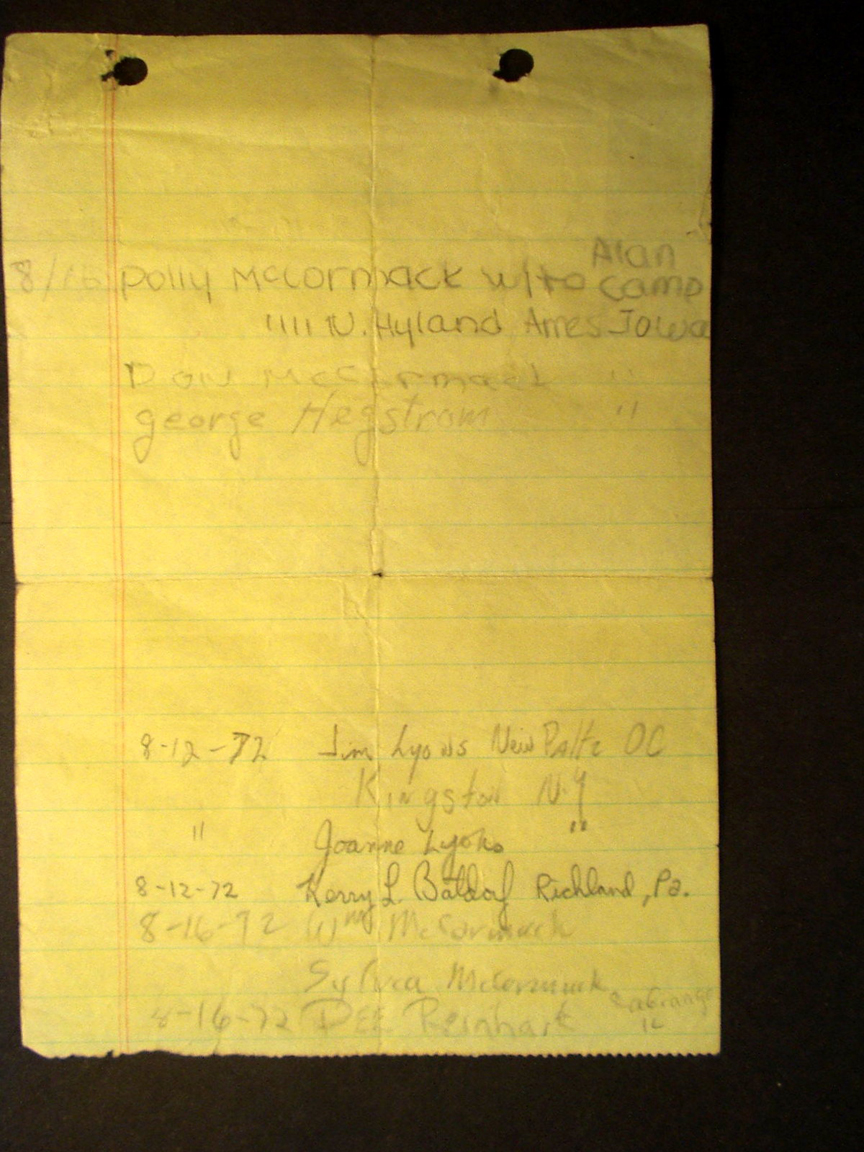 Alan
8/16 Polly McCormack w/to Camp
1111 N. Hyland Ames Iowa
Don McCormack "
george Hegstrom "
8-12-72 Jim Lyons New Paltz OC
Kingston N.Y
" Joanne Lyons "
8-12-72 Kerry L. Batdorf Richland, Pa.
8-16-72 Wm McCormack
Sylvia McCormack
8-16-72 DEE Reinhart LaGrange
IL